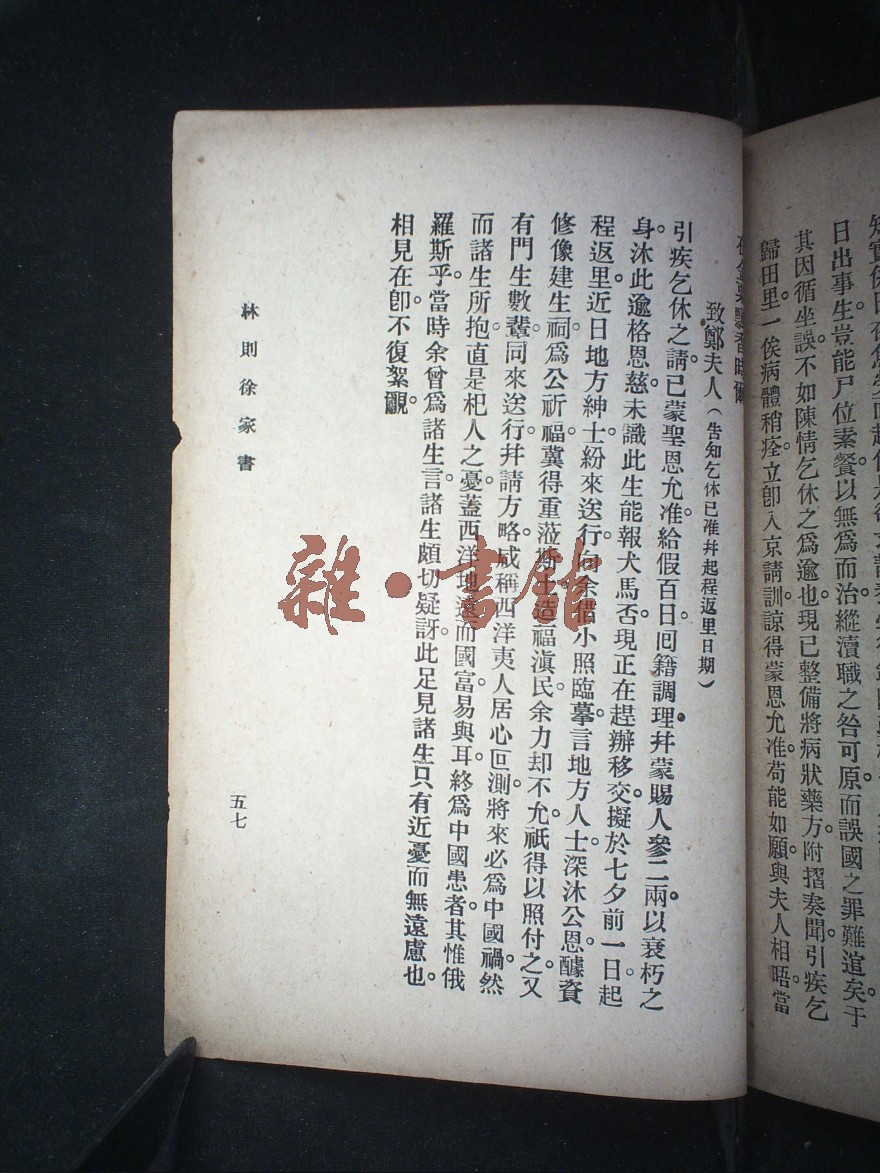 日出事生豈能尸位素餐以無爲而治縱瀆職之咎可原而誤國之罪難逭矣于
其因循坐誤不如陳情乞休之爲逾也現已整備將病狀藥方附摺奏聞引疾乞
歸田里一俟病體稍痊立卽入京請訓諒得蒙恩允准苟能如願與夫人相晤當
致鄭夫人（告知乞休已准幷起程返里日期）
引疾乞休之請已蒙聖恩允准給假百日回籍調理幷蒙賜人參二兩以衰朽之
身沐此逾格恩慈未識此生能報犬馬否現正在趕辦移交擬於七夕前一日起
程返里近日地方紳士紛來送行向余借小照臨摹言地方人士深沐公恩醵資
修像建生祠爲公祈福冀得重蒞斯土造福滇民余力却不允祇得以照付之又
有門生數輩同來送行幷請方略咸稱西洋夷人居心叵測將來必爲中國禍然
而諸生所抱直是杞人之憂蓋西洋地遠而國富易與耳終爲中國患者其惟俄
羅斯乎當時余曾爲諸生言諸生頗切疑訝此足見諸生只有近憂而無遠慮也
相見在卽不復絮覼
林則徐家書
五七
雜·書館